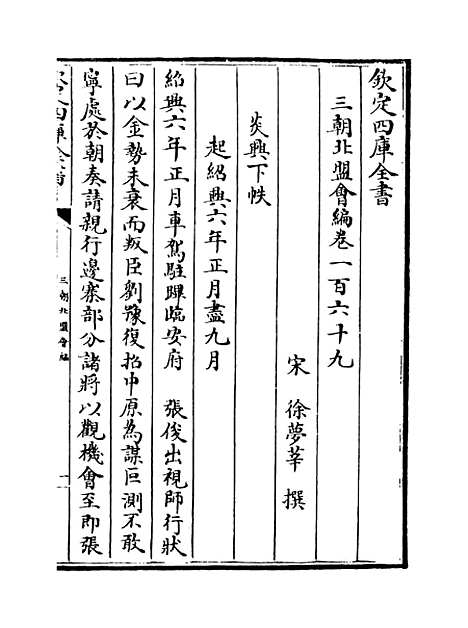 欽定四庫全書
三朝北盟會編卷一百六十九
宋 徐夢莘 撰
炎興下帙
起紹興六年正月盡九月
紹興六年正月車駕駐蹕臨安府 張俊出視師行狀
曰以金勢未衰而叛臣劉豫復招中原為謀叵測不敢
寧處於朝奏請親行邊寨部分諸將以觀機會至即張
三朝北盟會編
一